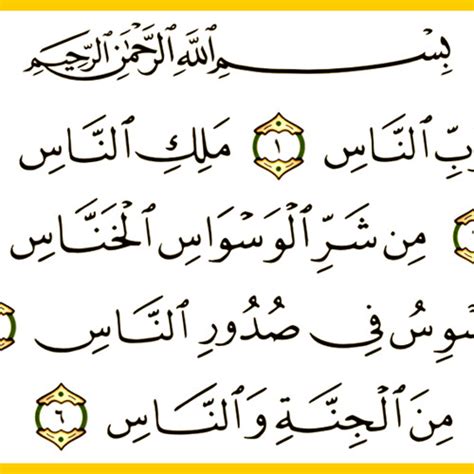 بِسْمِ ٱللَّهِ ٱلرَّحْمَٰنِ ٱلرَّحِيمِ
ٱلنَّاسِ ١ مَلِكِ ٱلنَّاسِ
مِن شَرِّ ٱلْوَسْوَاسِ ٱلْخَنَّاسِ
فِى صُدُورِ ٱلنَّاسِ
مِنَ ٱلْجِنَّةِ وَٱلنَّاسِ ٦